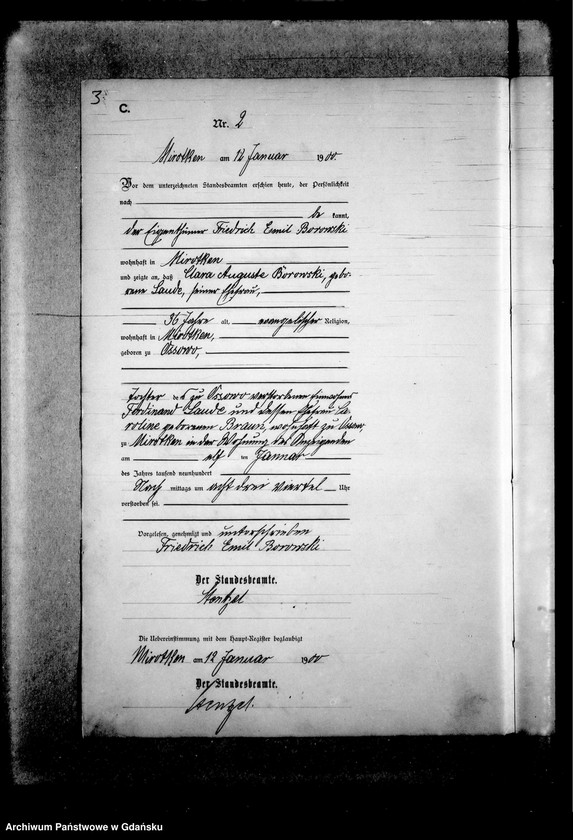 3
C.
Nr. 2
Mirotken am 12 Januar 1900.
Vor dem unterzeichneten Standesbeamten erschien heute, der Persönlichkeit
nach
be kannt,
der Eigenthümer Friedrich Emil Borowski
wohnhaft in Mirotken
und zeigte an, daß Clara Auguste Borowski, gebo-
rene Laude, seine Ehefrau,
36 Jahre alt, evangelischer Religion,
wohnhaft in Mirotken,
geboren zu Ossowo,
Tochter des zu Ossowo verstorbenen Einwohners
Ferdinand Laude und dessen Ehefrau Ca-
roline geborenen Braun, wohnhaft zu Ossowo
zu Mirotken in der Wohnung des Anzeigenden
am elf ten Januar
des Jahres tausend neunhundert
Nach mittags um acht drei viertel Uhr
verstorben sei.
Vorgelesen, genehmigt und unterschrieben
Friedrich Emil Borowski
Der Standesbeamte.
Stentzel
Die Uebereinstimmung mit dem Haupt-Register beglaubigt
Mirotken am 12 Januar 1900
Der Standesbeamte.
Stentzel.
Archiwum Państwowe w Gdańsku